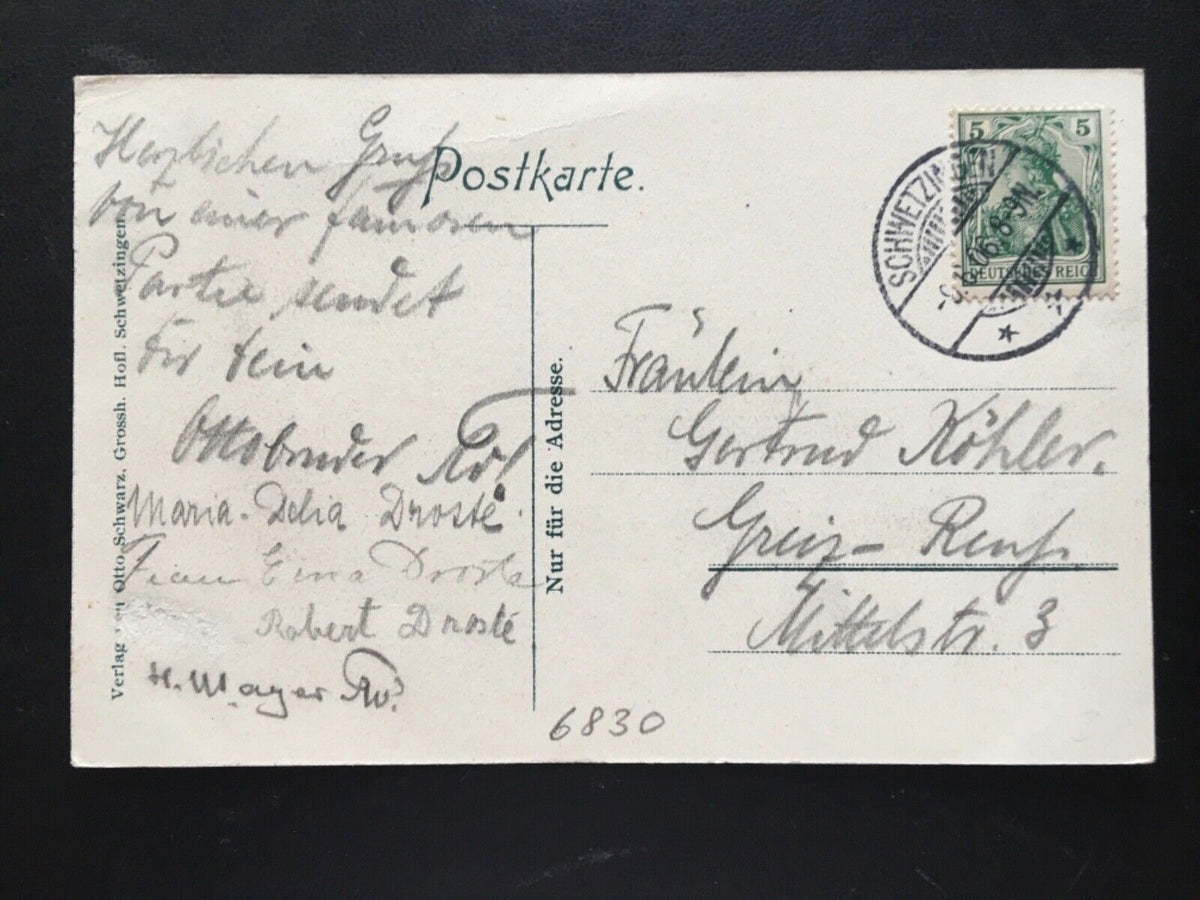 Postkarte.
Herzlichen Gruß
von einer famosen
Partie sendet
dir dein
Ottobruder
Maria-Delia Drosté.
Frau Erna Droste
Robert Drosté
H. Mayer
Verlag von Otto Schwarz. Grossh. Hofl. Schwetzingen
Nur für die Adresse.
5 5
DEUTSCHES REICH
SCHWETZINGEN
06.8-9N.
Fräulein
Gertrud Köhler.
Greiz- Reuß.
Mittelstr. 3
6830